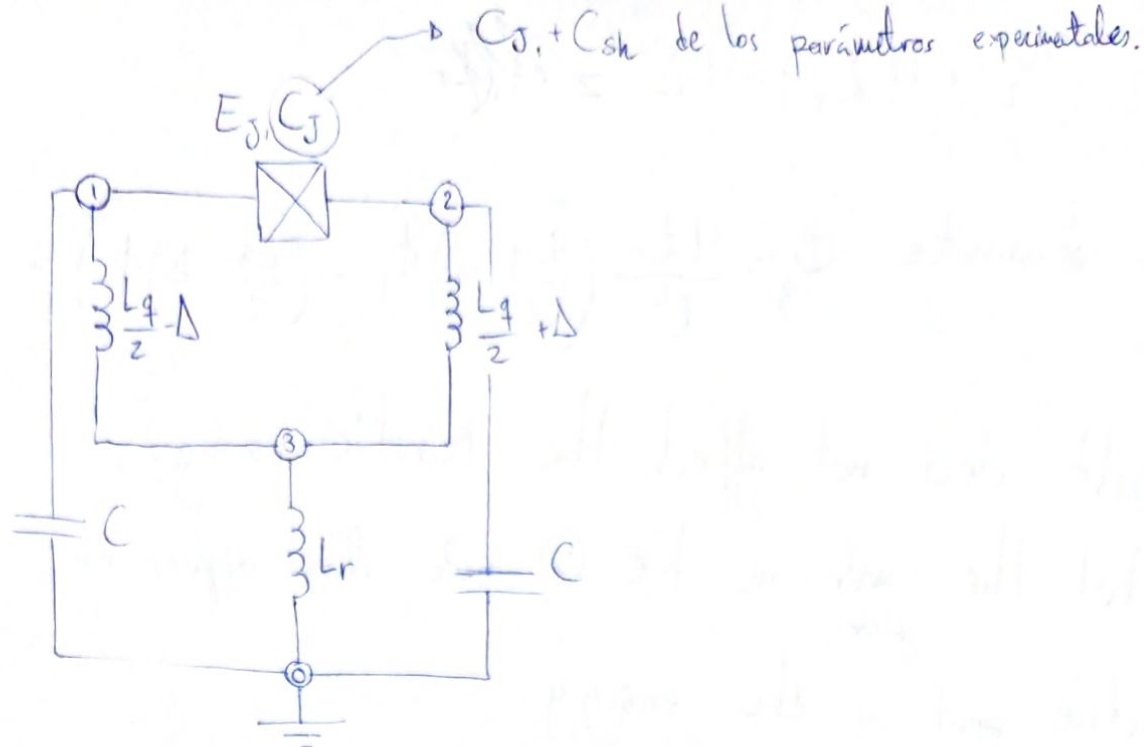 C_J + C_sh de los parámetros experimentales.
E_J, C_J
1
2
L_q/2 -Δ
L_q/2 +Δ
3
C
L_r
C
0